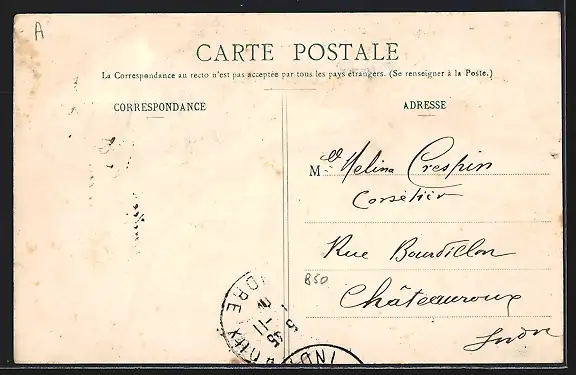 A
CARTE POSTALE
La Correspondance au recto n'est pas acceptée par tous les pays étrangers. (Se renseigner à la Poste.)
CORRESPONDANCE
ADRESSE
Mlle Melina Crespin
Corsetièr
Rue Bourdillon
B50
Châteauroux
Indre
DRE
IND